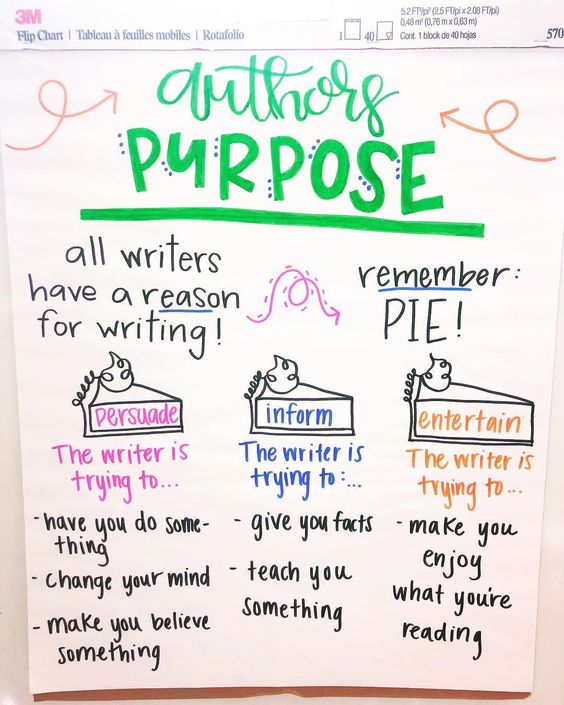 3M
Flip Chart | Tableau à feuilles mobiles | Rotafolio
1 40
5.2 FT²/pi² (2.5 FT/pi x 2.08 FT/pi)
0,48 m² (0,76 m x 0,63 m)
Cont. 1 block de 40 hojas
570
authors
PURPOSE
all writers
have a reason
for writing!
remember:
PIE!
persuade
The writer is
trying to...
- have you do some-
thing
- change your mind
- make you believe
something
inform
The writer is
trying to:...
- give you facts
- teach you
something
entertain
The writer is
trying to...
- make you
enjoy
what you're
reading